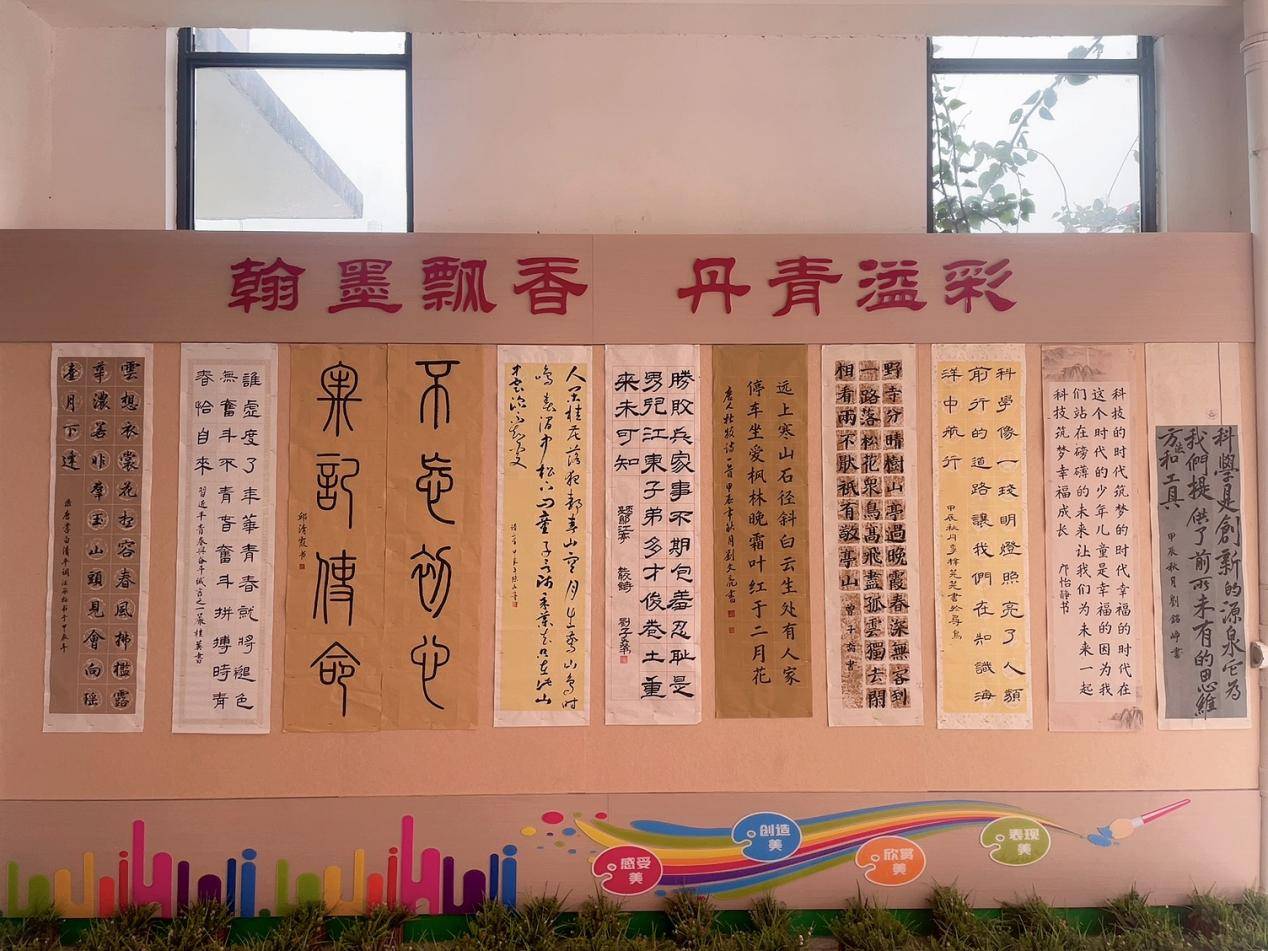 翰墨飘香 丹青溢彩
科學是創新的源泉它為
我們提供了前所未有的思維
方法和工具
甲辰秋月劉銘崢書
科技的时代筑梦的时代幸福的时代在
这个时代的少年儿童是幸福的因为我
们站在磅礴的未来让我们为未来一起
科技筑梦幸福成长 邝怡静书
科學像一琖明燈照亮了人類
前行的道路讓我們在知識海
洋中航行
野寺分晴樹山亭過晚霞春深無客到
一路落松花衆鳥高飛盡孤雲獨去閑
相看兩不猒衹有敬亭山
远上寒山石径斜白云生处有人家
停车坐爱枫林晚霜叶红于二月花
唐人杜牧诗一首甲辰年秋月劉文亮書
勝敗兵家事不期包羞忍耻是
男兒江東子弟多才俊卷土重
来未可知
人閑桂花落夜静春山空月出驚山鳥时
鳴春涧中松下问童子言师采藥去只在此山
中云深不知处
不忘初心
牢記使命
邱清霞书
誰虚度了年華青春就將褪色
無奮斗不青春奮斗拼搏時青
春恰自来
雲想衣裳花想容春風拂檻露
華濃若非羣玉山頭見會向瑶
臺月下逢
感受美
创造美
欣赏美
表现美